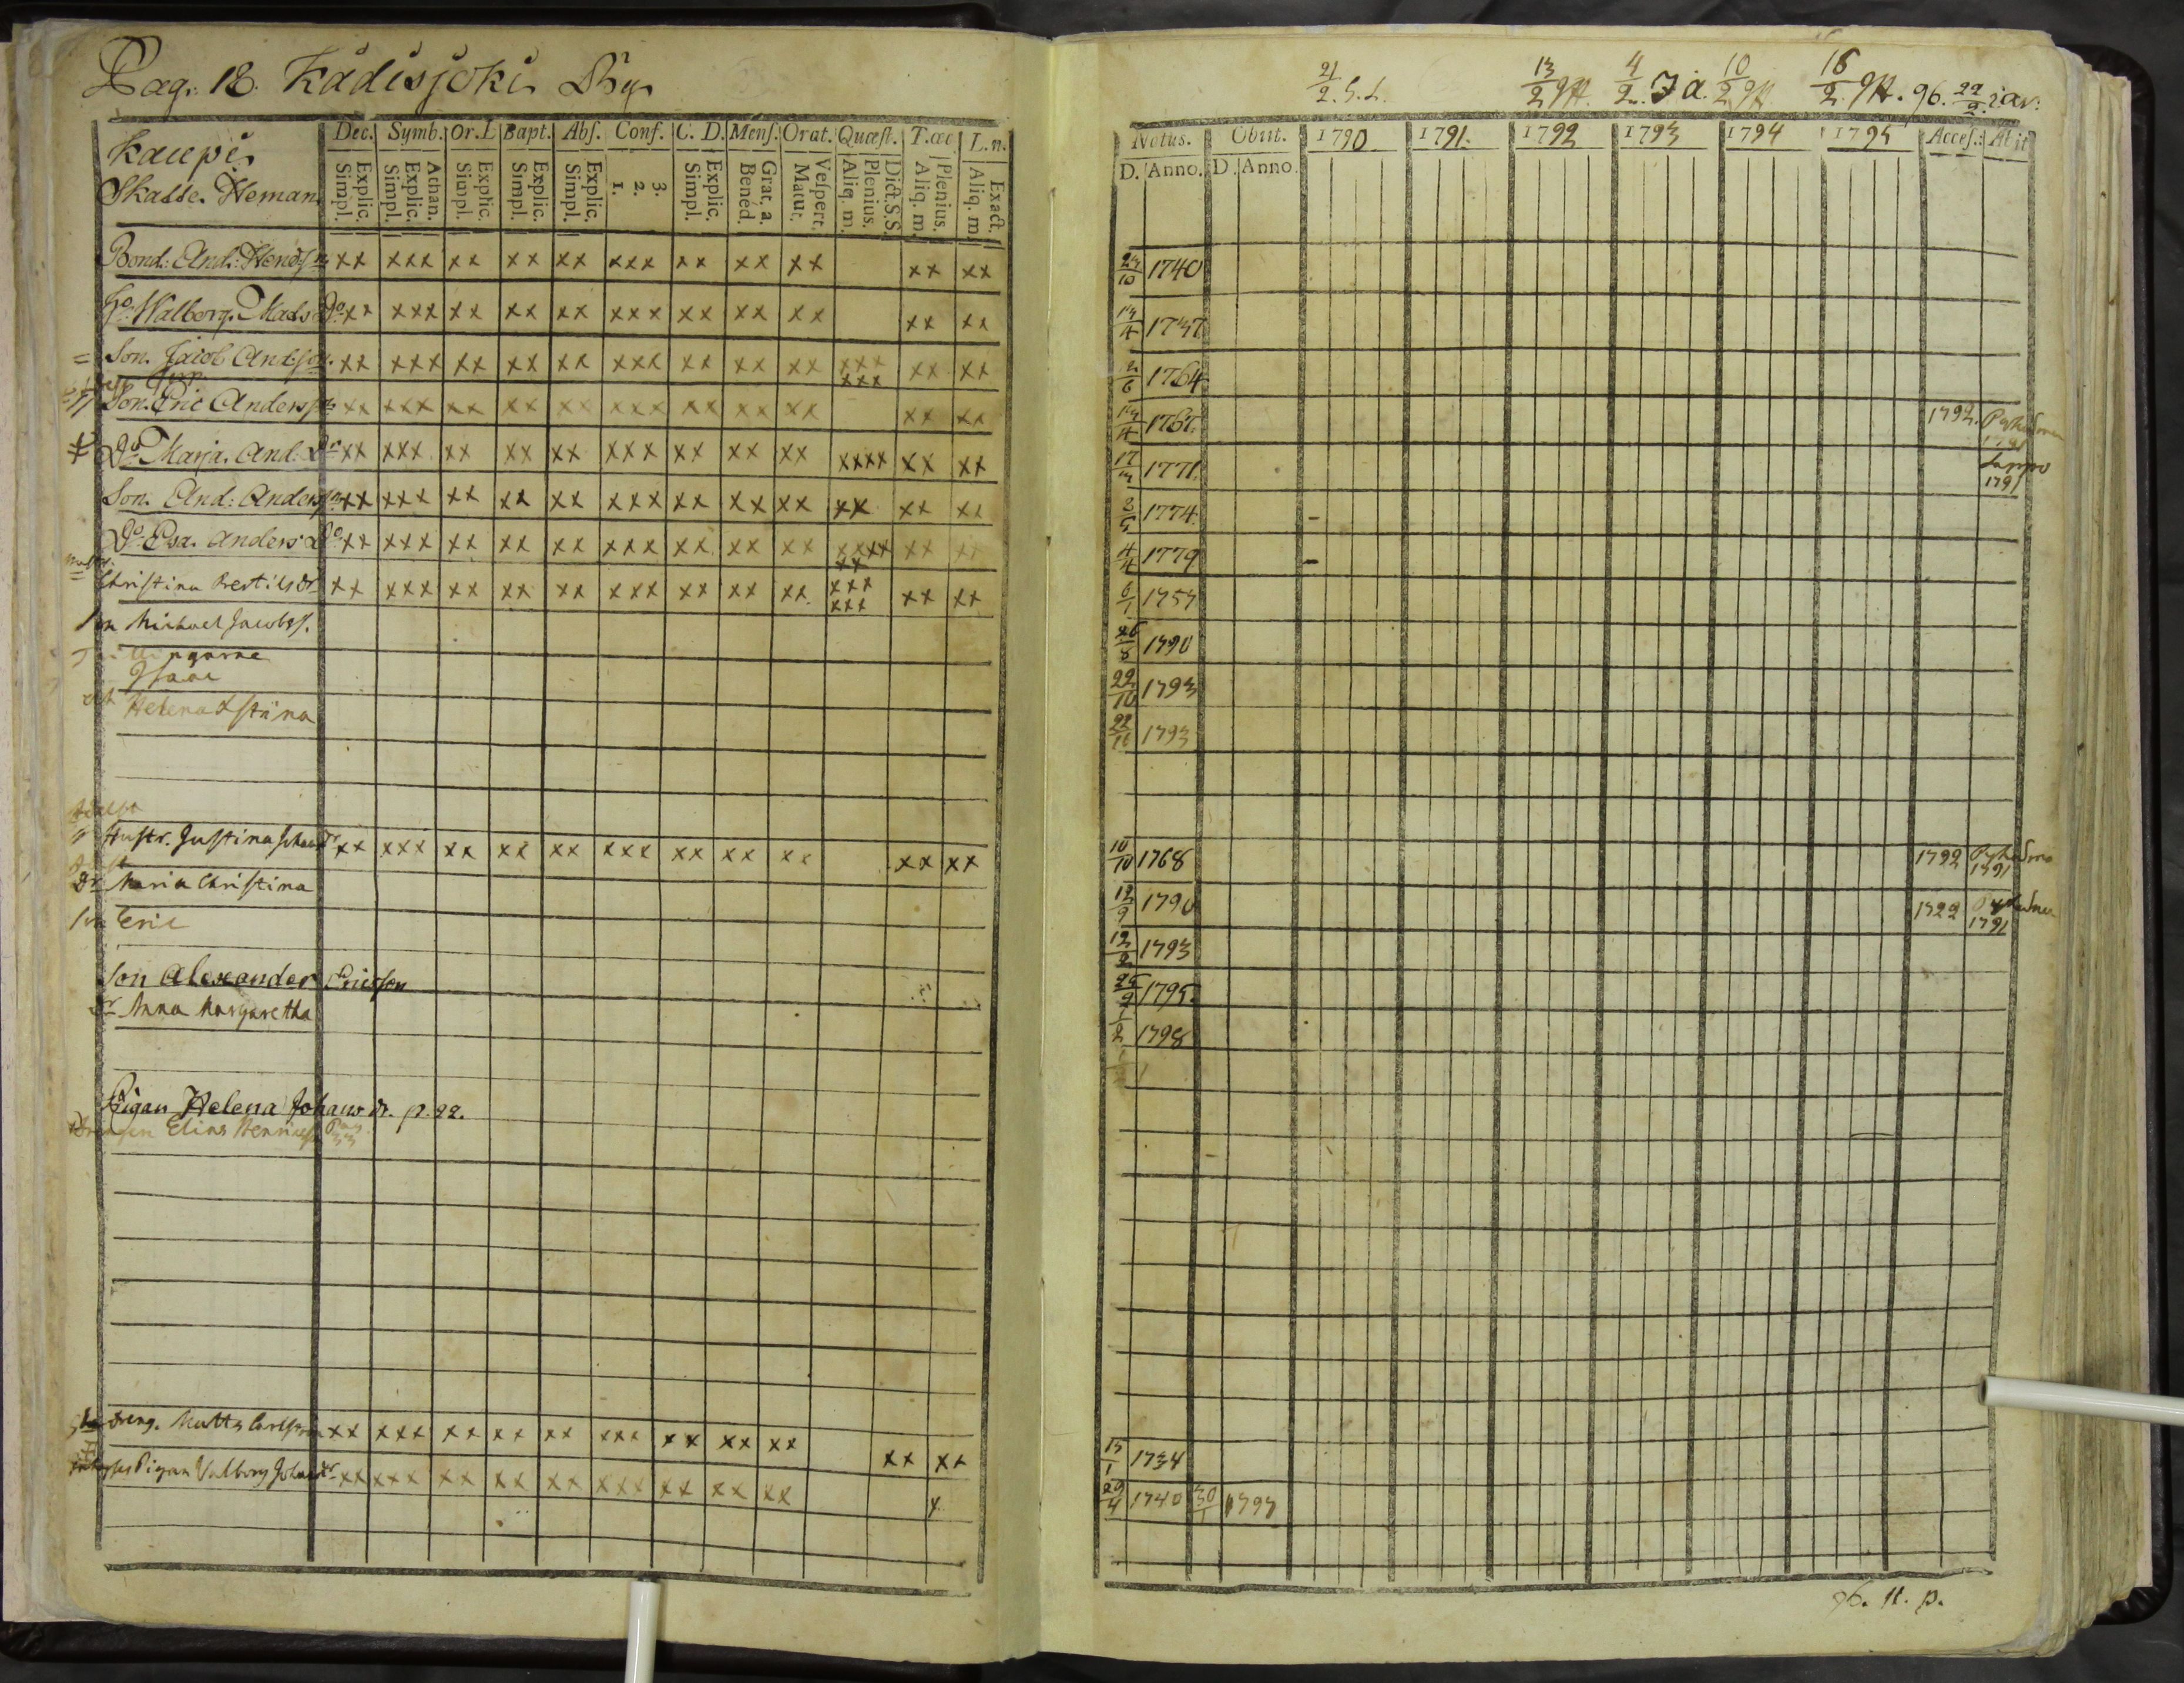 Pag. 18. Kådisjoki By
Kaupi
Skatte. Heman
Dec. Symb. Or. L Bapt. Abs. Conf. C. D. Mens. Orat. Quæst. T.æc. L.n.
Explic. Simpl. Athan. Explic. Simpl. Explic. Simpl. Explic. Simpl. Explic. Simpl. 3. 2. 1. Explic. Simpl. Grat. a. Bened. Vespert. Matut. Dict.S.S. Plenius. Aliq. m. Plenius. Aliq. m. Exact. Aliq. m.
Bond: And: Hendssn xx xxx xx xx xx xxx xx xx xx xx xx
Ho. Walborg. Mats Do xx xxx xx xx xx xxx xx xx xx xx xx
= Son. Jacob Andsson. xx xxx xx xx xx xxx xx xx xx xxx xxx xx xx
Son. Eric Andersson xx xxx xx xx xx xxx xx xx xx xx xx
Do Marja. And. Do xx xxx xx xx xx xxx xx xx xx xxxx xx xx
Son. And: Anderssn xx xxx xx xx xx xxx xx xx xx xx xx xx
Do Esa. Anders Do xx xxx xx xx xx xxx xx xx xx xxxx xx xx xx
Christina Bertilsdr xx xxx xx xx xx xxx xx xx xx. xxx xxx xx xx
son Michael Jacobss.
Isaac
Helena Stina
Hustr. Justina Johansdr xx xxx xx xx xx xxx xx xx xx xx xx
Dr Maria Christina
son Eric
Son Alexander Ericsson
Dr Anna Margaretha
Pigan Helena Johansdr. p. 22.
Drengen Elias Henricss Pag 33
dreng. Matts Carlsson xx xxx xx xx xx xxx xx xx xx xx xx
Pigan Valborg Johansdr xx xxx xx xx xx xxx xx xx xx x
21/2. S. L. 13/2 4/2. 10/2 16/2. 96. 22/2.
Natus. Obiit. 1790 1791. 1792 1793 1794 1795 Acces. Abiit
D. Anno. D. Anno.
23/10 1740
13/4 1737
2/6 1764
13/4 1767. 1792. Pyhäsmen 1791
17/3 1771. Lappo 1791
3/5 1774.
4/4 1779
6/1 1753
26/8 1790
22/10 1793
22/10 1793
10/10 1768 1792 1791
12/9 1790 1792 1791
12/2 1793
25/9 1795.
1/2 1798
13/1 1734
29/4 1740 30/1 1797
96. 11. p.